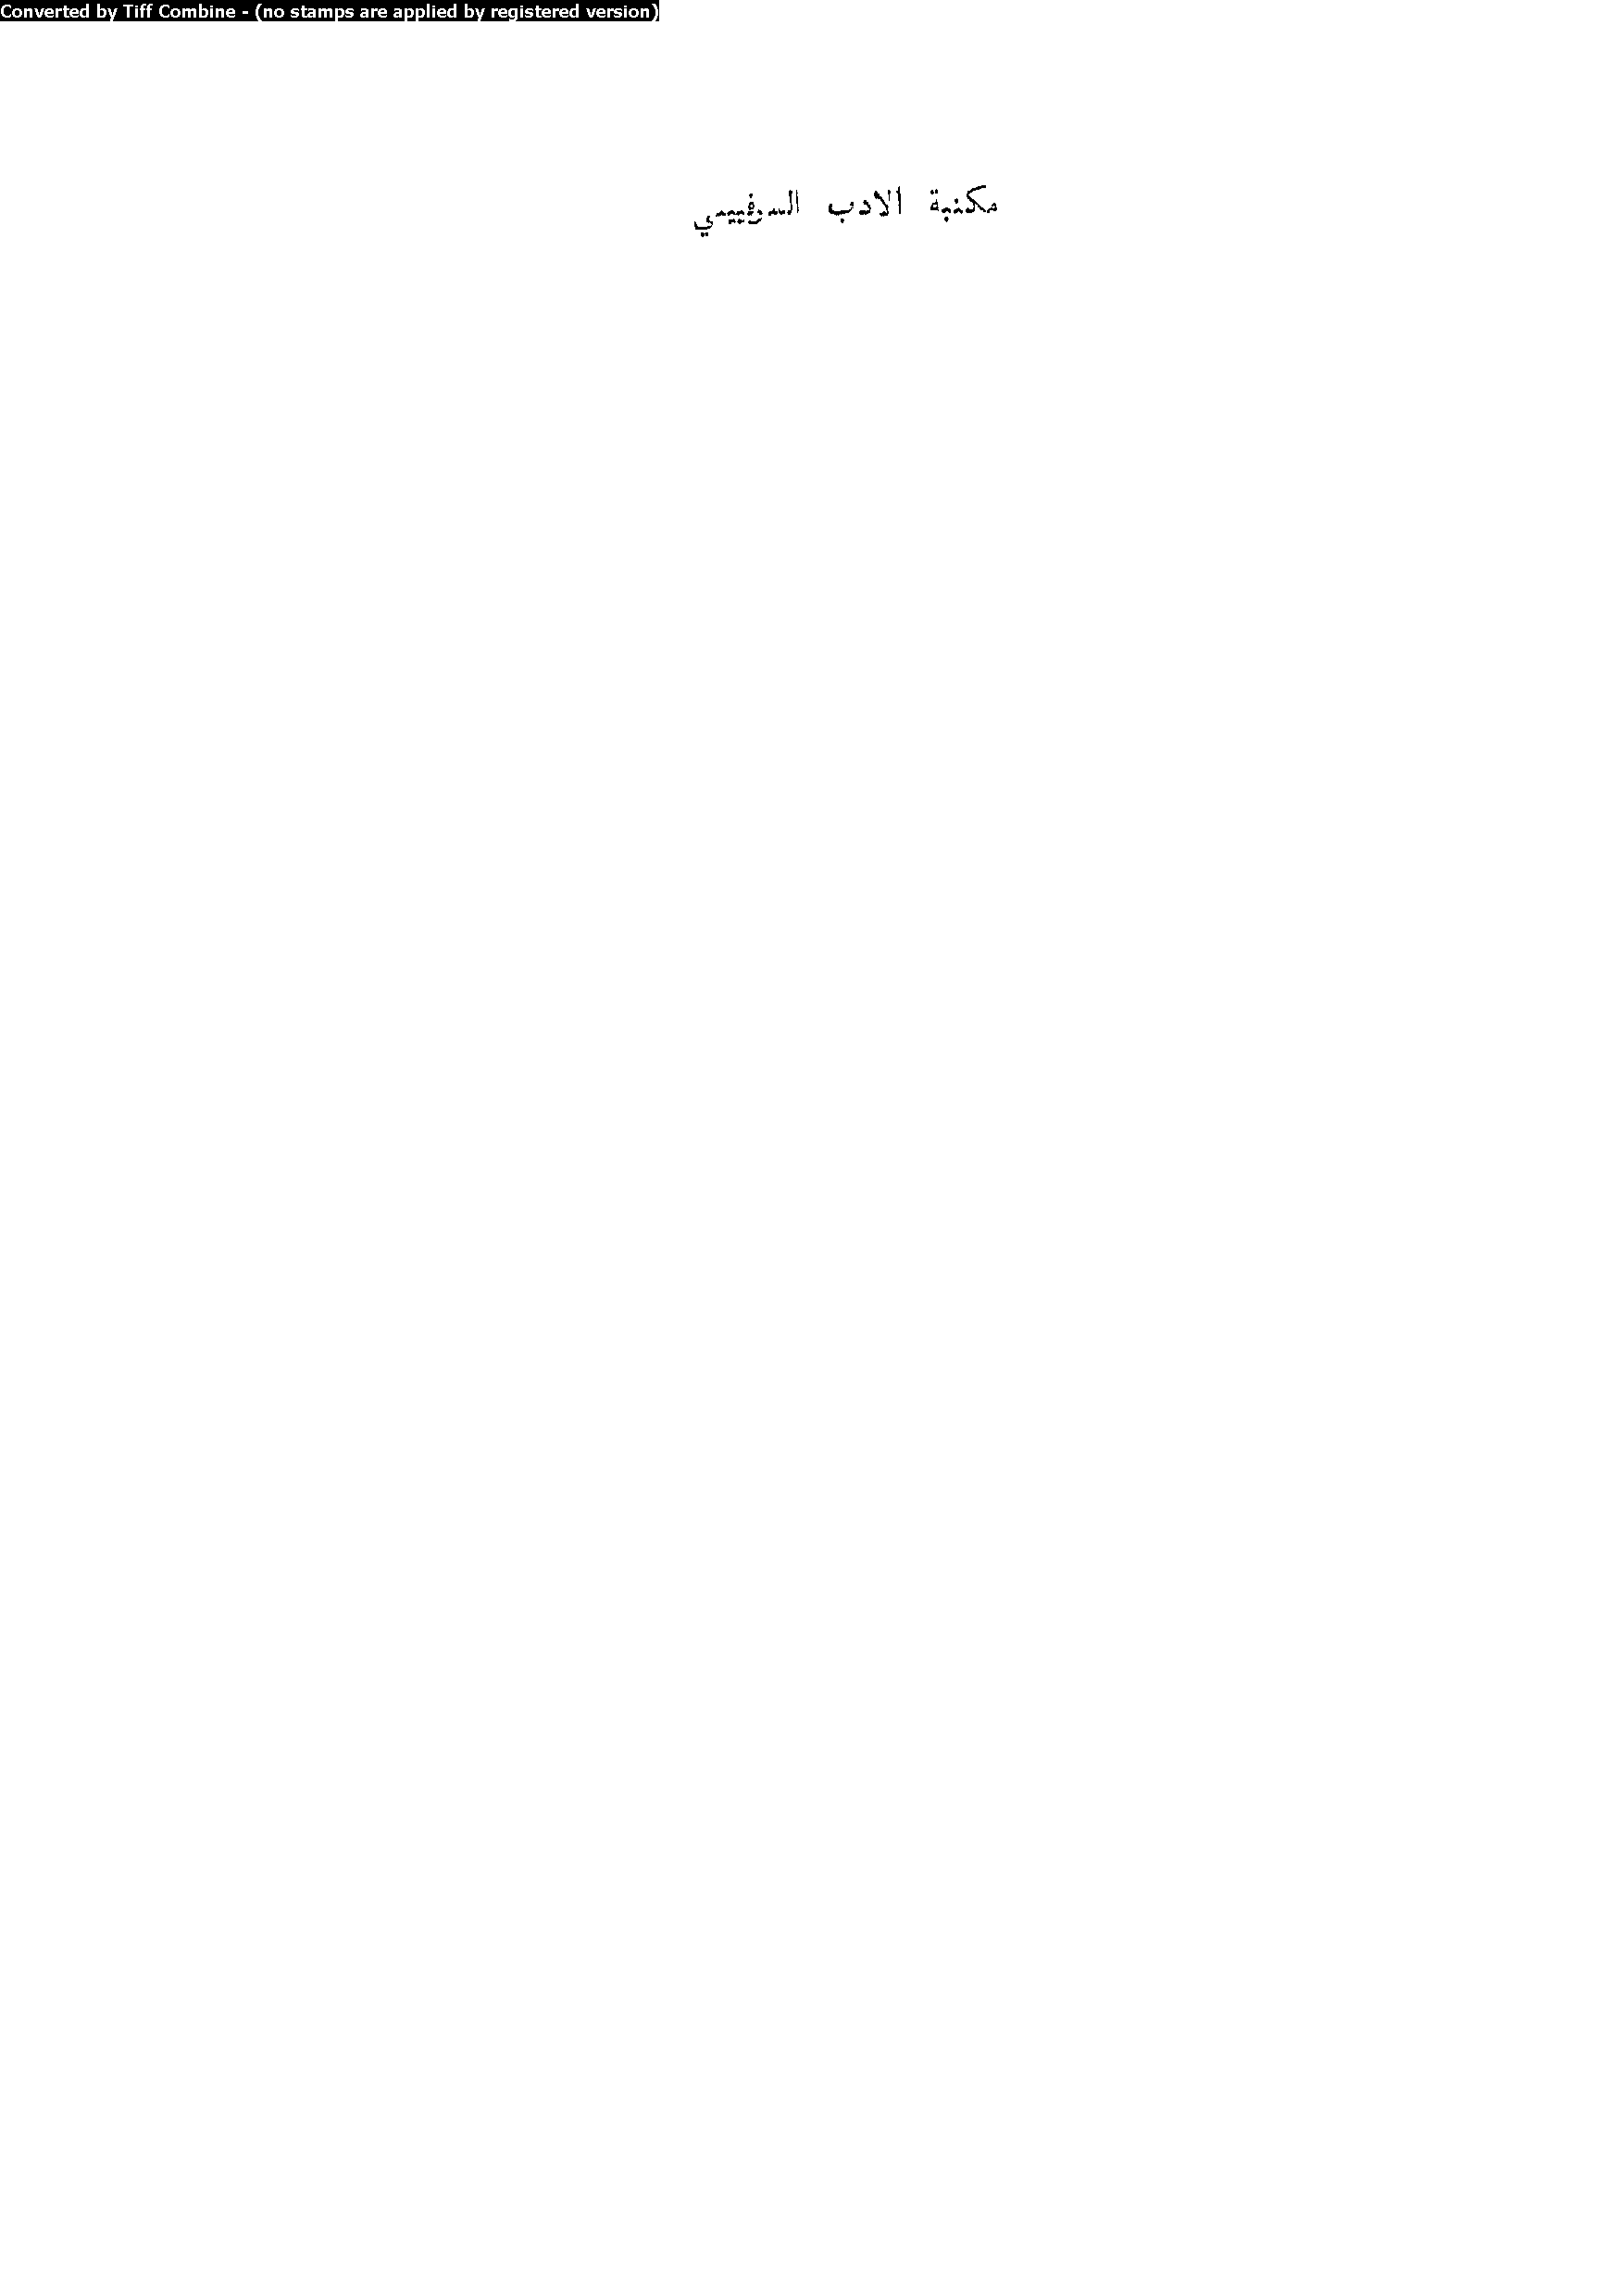 Converted by Tiff Combine - (no stamps are applied by registered version)
مكتبة الادب السوفييتي